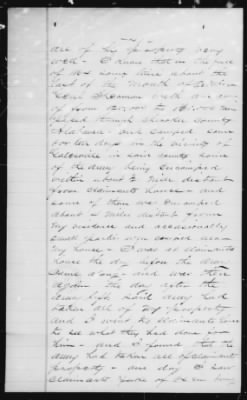 all of his property very
well - I know that in the year
of 1864 some time about the
last of the Month of October
Genl Sherman with an army
of from
passed through Cherokee County
Alabama - and camped some
four ten days in the vicinity of
Gaylesville in said county some
of the army being encamped
within about 2 miles distant
from claimants house - and
some of them was encamped
about 4 miles distant from
my residence and occasionally
small parties were around
my house - I was at claimants
house the day before the army
came along - and was there
again the day after the
army left, said army had
taken all of my property
and I went to claimants house
to see what they had done for
him - and I found that the
army had taken all of claimants
property - one day I saw
claimants yoke of oxen